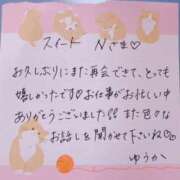 スイート Nさま♡
お久しぶりにまた再会できて、とっても
嬉しかったです♡お仕事がお忙しい中
ありがとうございました!!また色々な
お話しを聞かせて下さいね♡
ゆうか